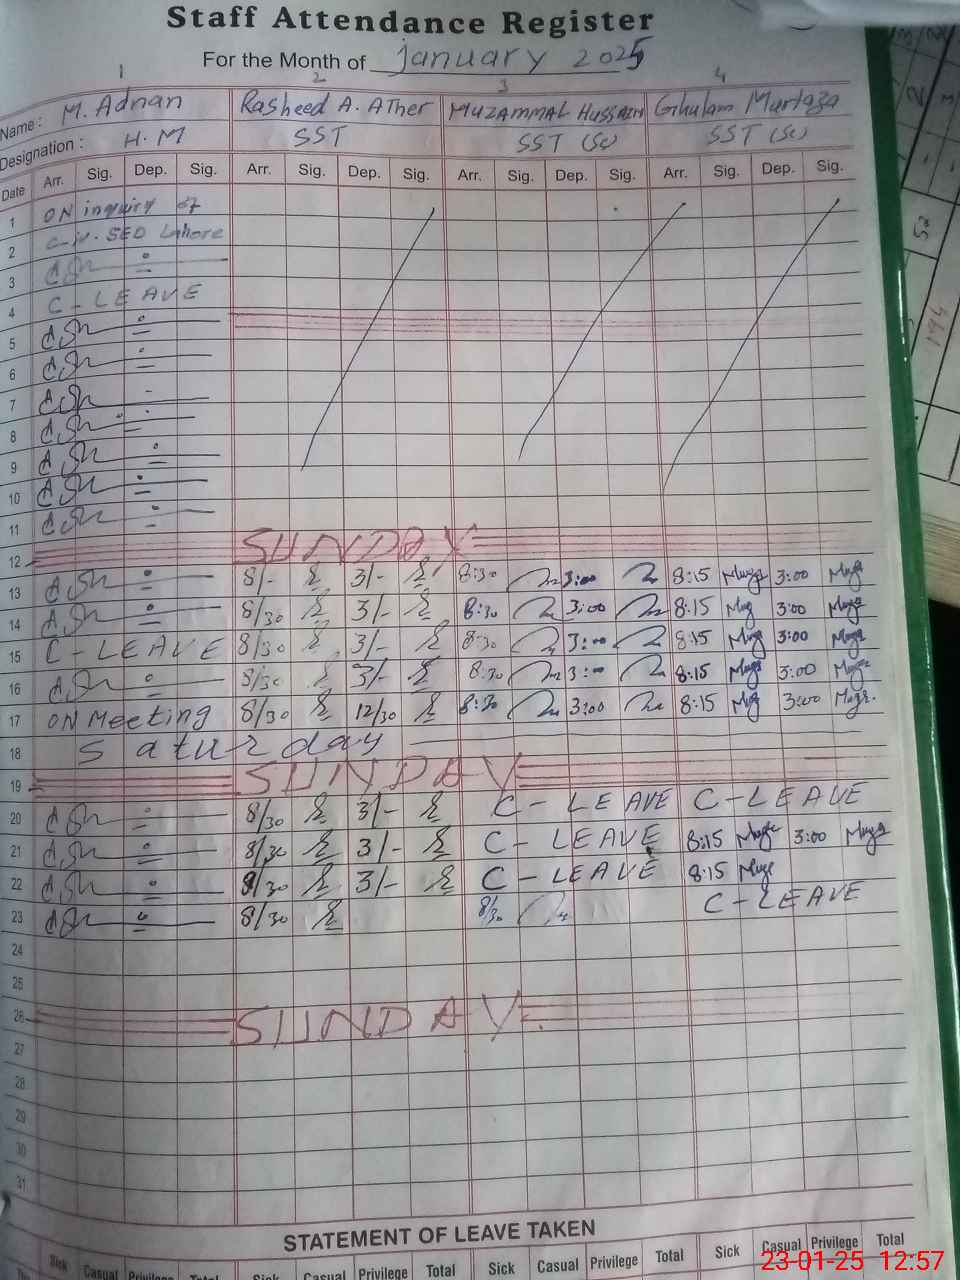 Staff Attendance Register
For the Month of January 2025
1 2 3 4
Name: M. Adnan Rasheed A. ATher Muzammal Hussain Ghulam Murtaza
Designation: H.M SST SST (Sc) SST (Sc)
Date Arr. Sig. Dep. Sig. Arr. Sig. Dep. Sig. Arr. Sig. Dep. Sig. Arr. Sig. Dep. Sig.
1 ON inquiry of
2 SED Lahore
3
4 C-LEAVE
5
6
7
8
9
10
11
12 SUNDAY
13 8/- 3/- 8:30 3:00 8:15 3:00
14 8/30 3/- 8:30 3:00 8:15 3:00
15 C-LEAVE 8/30 3/- 8:30 3:00 8:15 3:00
16 8/30 3/- 8:30 3:00 8:15 3:00
17 ON Meeting 8/30 12/30 8:30 3:00 8:15 3:00
18 Saturday
19 SUNDAY
20 8/30 3/- C-LEAVE C-LEAVE
21 8/30 3/- C-LEAVE 8:15 3:00
22 8/30 3/- C-LEAVE 8:15
23 8/30 8/30 C-LEAVE
24
25
26 SUNDAY
27
28
29
30
31
STATEMENT OF LEAVE TAKEN
Sick Casual Privilege Total Sick Casual Privilege Total Sick Casual Privilege Total Sick Casual Privilege Total
23-01-25 12:57